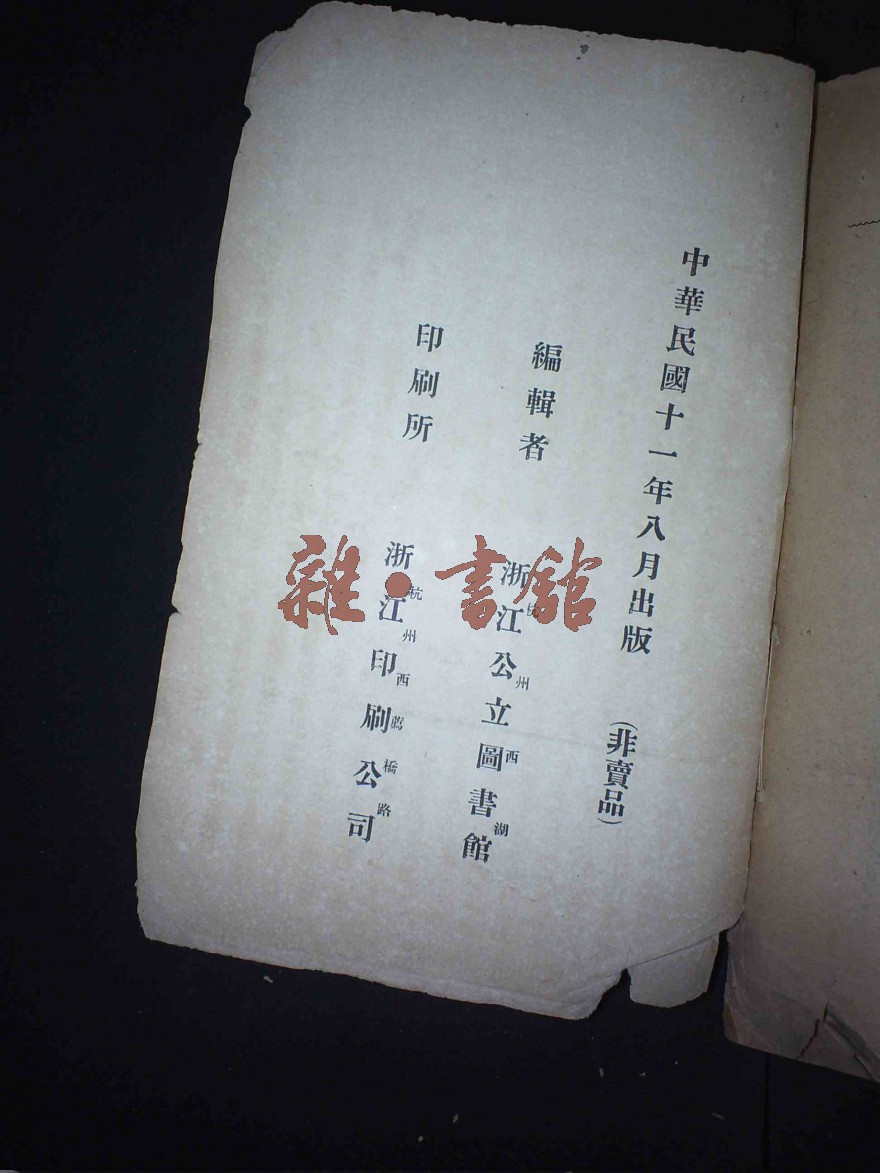 中華民國十一年八月出版 (非賣品)
編輯者 杭州西湖 浙江公立圖書館
印刷所 杭州西薦橋路 浙江印刷公司
雜·書館